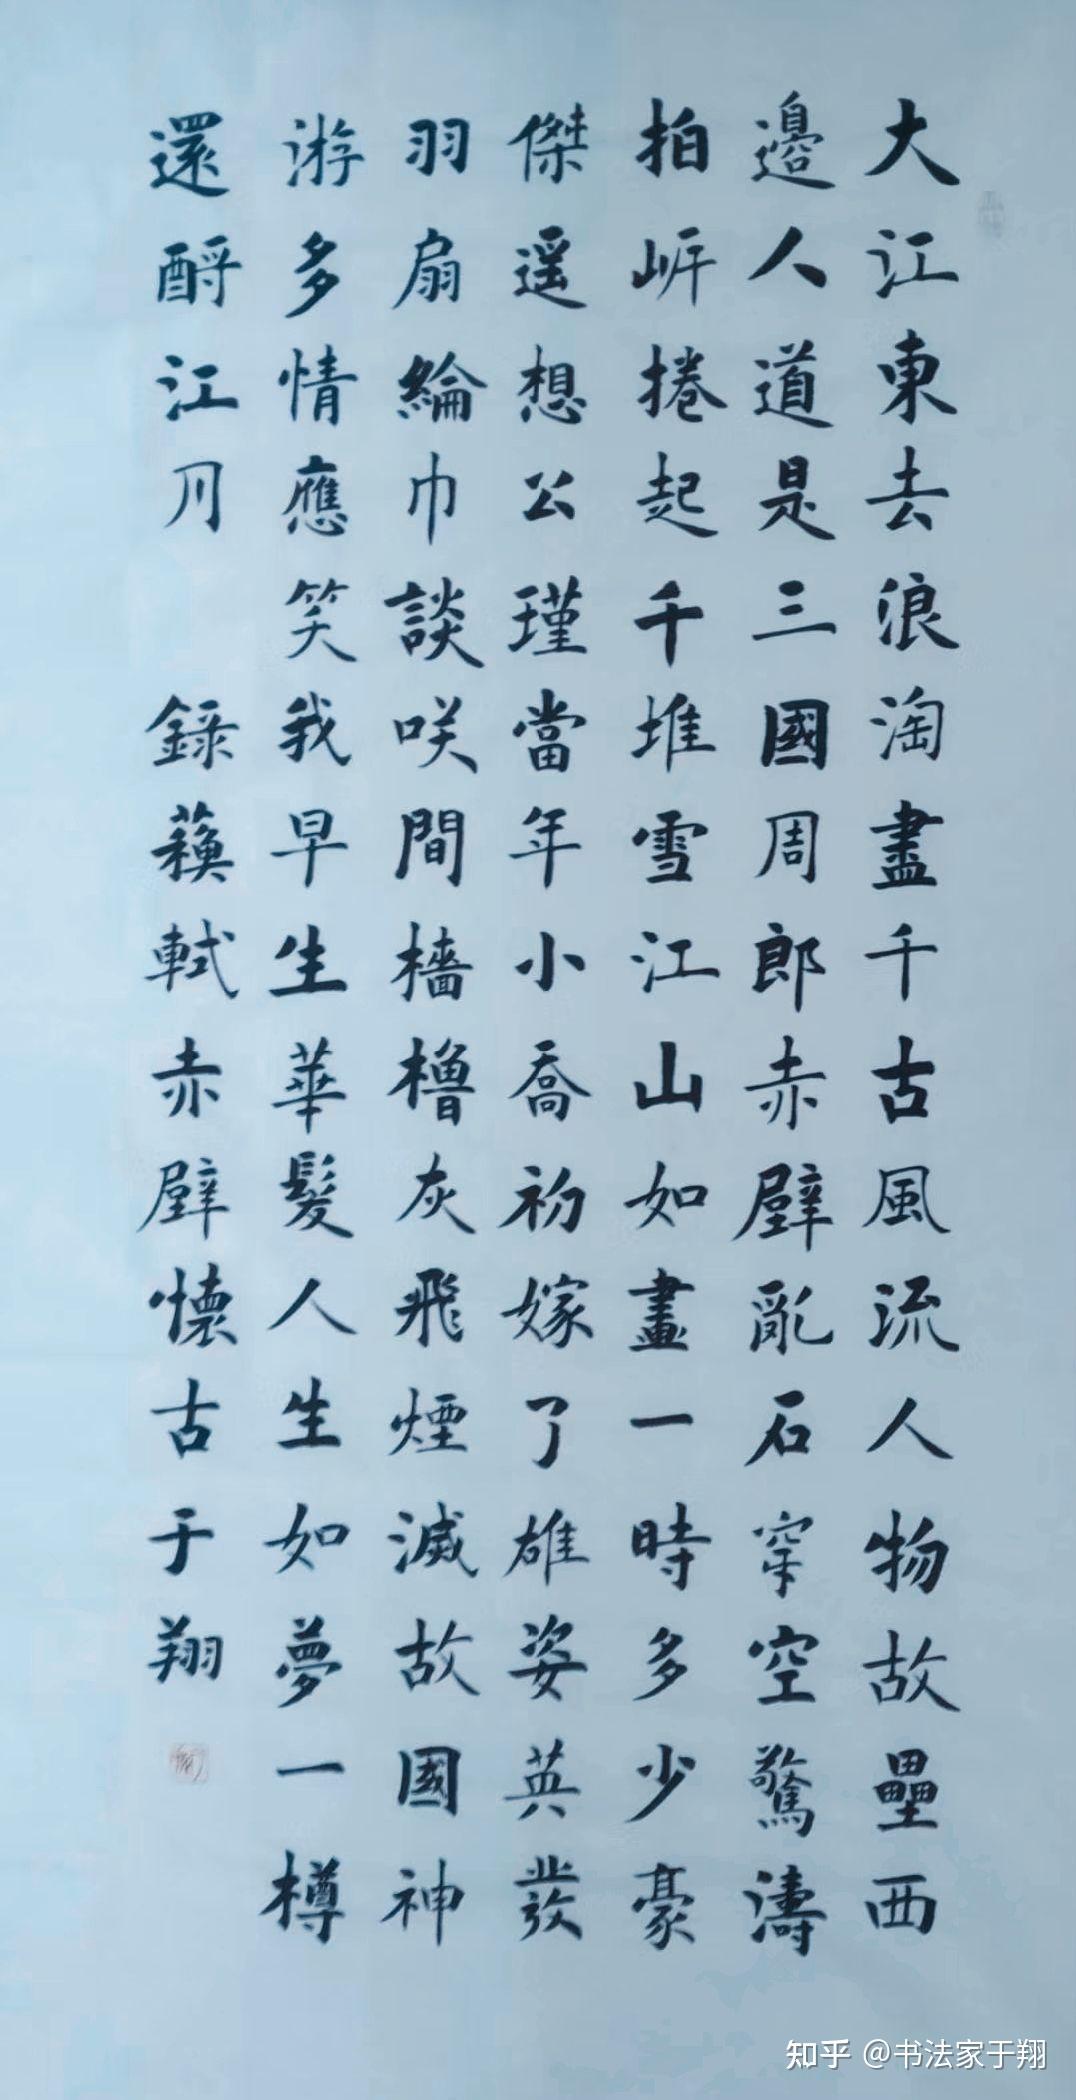 大江東去浪淘盡千古風流人物故壘西
邊人道是三國周郎赤壁亂石穿空驚濤
拍岍捲起千堆雪江山如畫一時多少豪
傑遥想公瑾當年小喬初嫁了雄姿英發
羽扇綸巾談咲間檣櫓灰飛煙滅故國神
游多情應笑我早生華髮人生如夢一樽
還酹江月
錄蘓軾赤壁懷古于翔
知乎 @书法家于翔